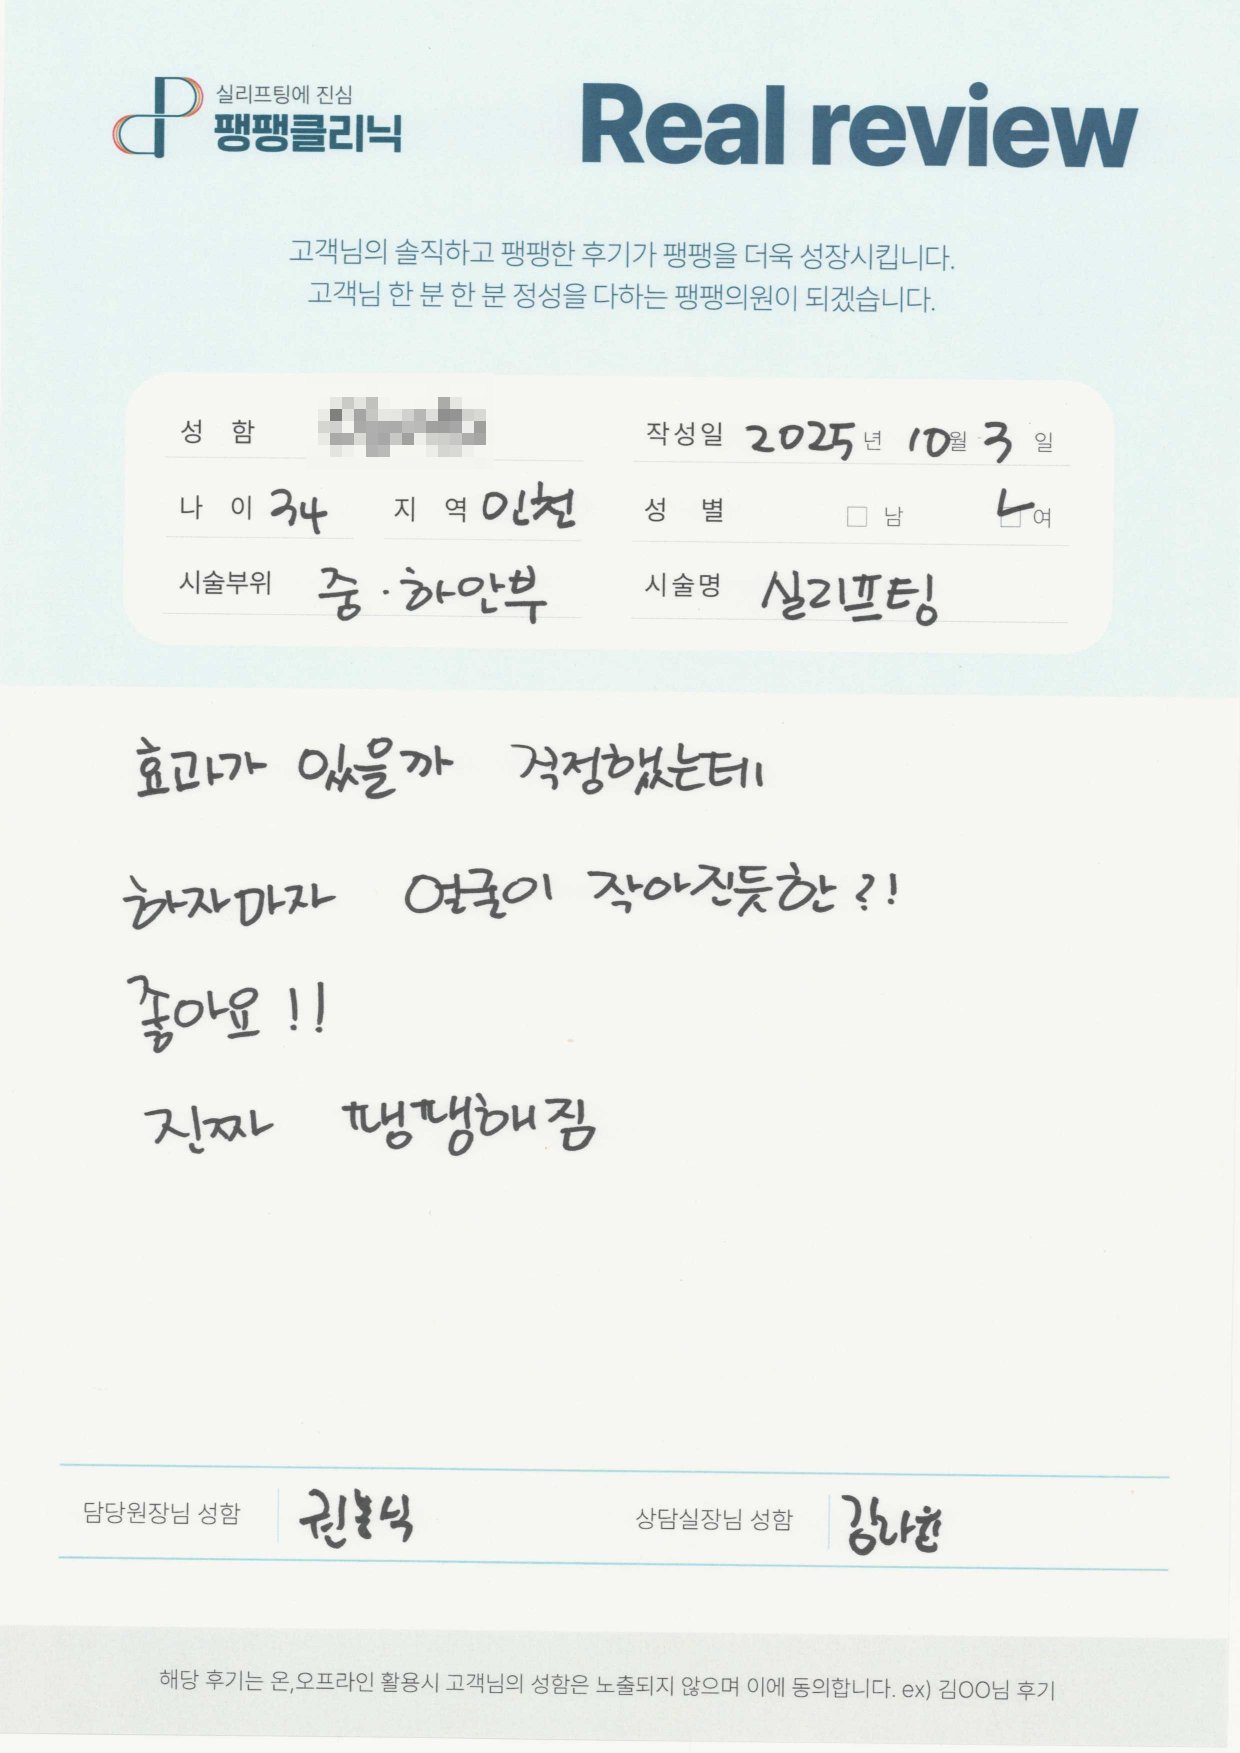 실리프팅에 진심
팽팽클리닉
Real review
고객님의 솔직하고 팽팽한 후기가 팽팽을 더욱 성장시킵니다.
고객님 한 분 한 분 정성을 다하는 팽팽의원이 되겠습니다.
성 함 작성일 2025년 10월 3일
나 이 34 지 역 인천 성 별 남 여
시술부위 중·하안부 시술명 실리프팅
효과가 있을까 걱정했는데
하자마자 얼굴이 작아진듯한?!
좋아요!!
진짜 팽팽해짐
담당원장님 성함 상담실장님 성함 김라윤
해당 후기는 온,오프라인 활용시 고객님의 성함은 노출되지 않으며 이에 동의합니다. ex) 김OO님 후기